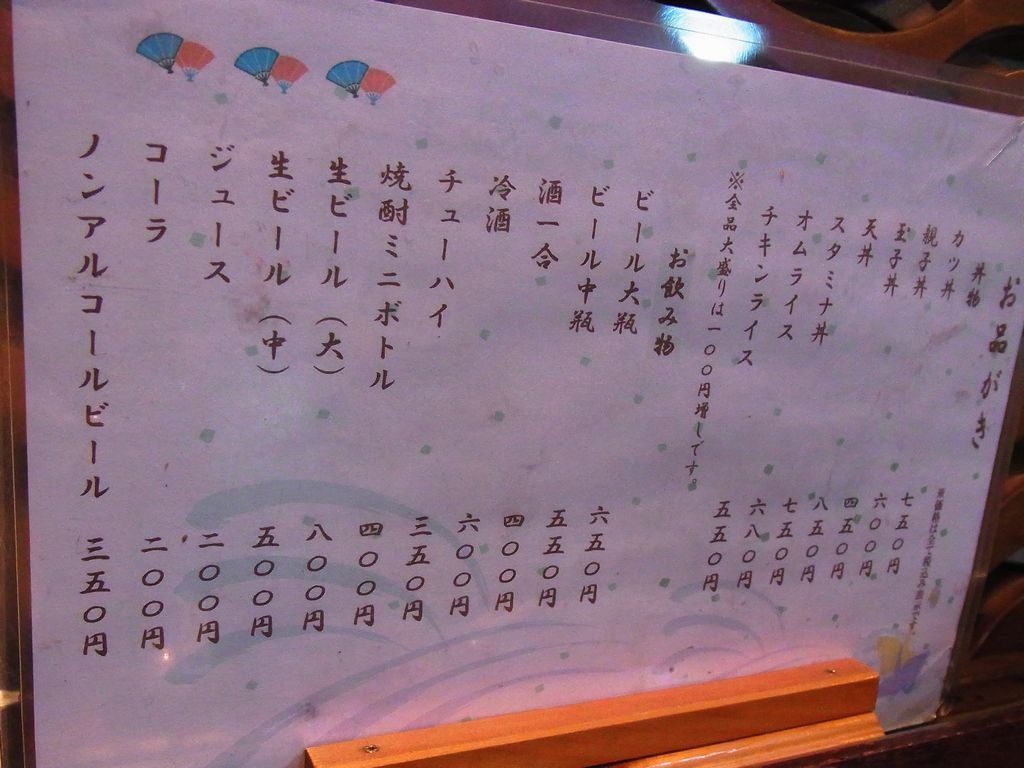 お品がき
※価格は全て税込み表示です。
丼物
カツ丼 七五〇円
親子丼 六〇〇円
玉子丼 四五〇円
天丼 八五〇円
スタミナ丼 七五〇円
オムライス 六八〇円
チキンライス 五五〇円
※全品大盛りは一〇〇円増しです。
お飲み物
ビール大瓶 六五〇円
ビール中瓶 五五〇円
酒一合 四〇〇円
冷酒 六〇〇円
チューハイ 三五〇円
焼酎ミニボトル 四〇〇円
生ビール(大) 八〇〇円
生ビール(中) 五〇〇円
ジュース 二〇〇円
コーラ 二〇〇円
ノンアルコールビール 三五〇円